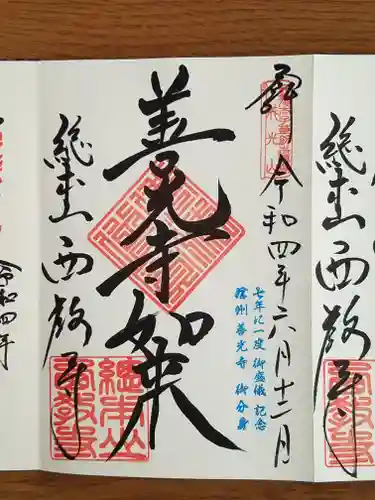 總本山 西教寺
令和四年六月十二日
七年に一度 御盛儀 記念
信州 善光寺 御分身
善光寺如来
總本山 西教寺
令和四年